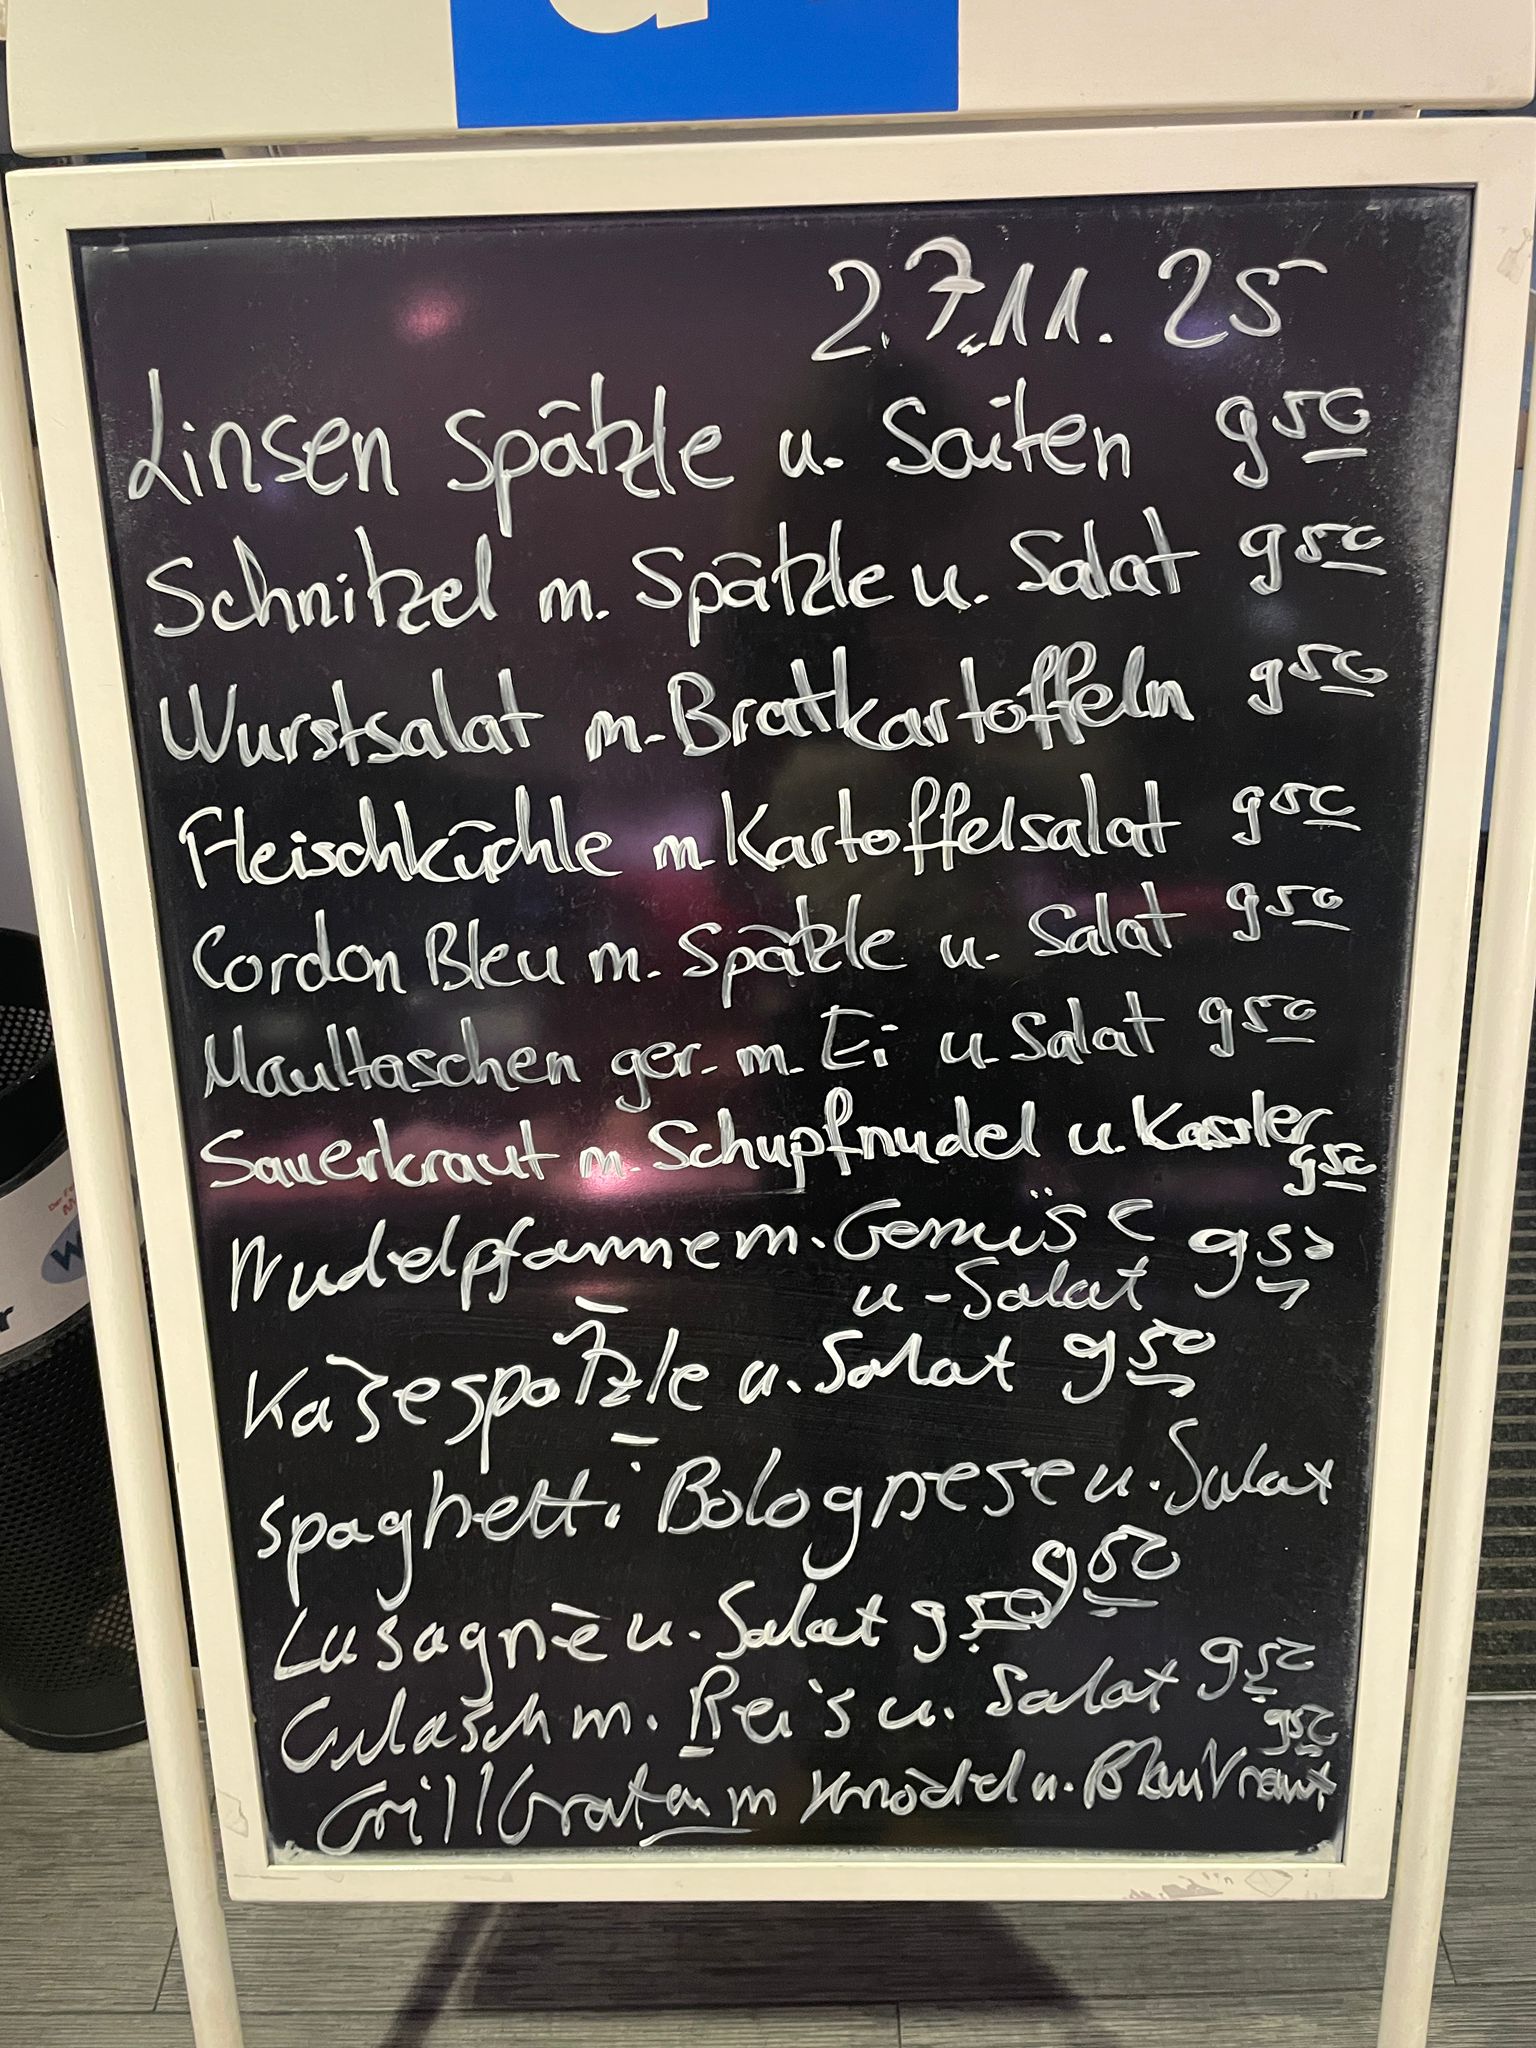 27.11.25
Linsen Spätzle u. Saiten 9 50
Schnitzel m. Spätzle u. Salat 9 50
Wurstsalat m. Bratkartoffeln 9 50
Fleischküchle m. Kartoffelsalat 9 50
Cordon Bleu m. Spätzle u. Salat 9 50
Maultaschen ger. m. Ei u. Salat 9 50
Sauerkraut m. Schupfnudel u. Kassler
9 50
Nudelpfanne m. Gemüse 9 50
u. Salat
Käsespätzle u. Salat 9 50
Spaghetti Bolognese u. Salat
9 50
Lasagne u. Salat 9 50
Gulasch m. Reis u. Salat 9 50
9 50
Grillbraten m Knödel u. Blaukraut